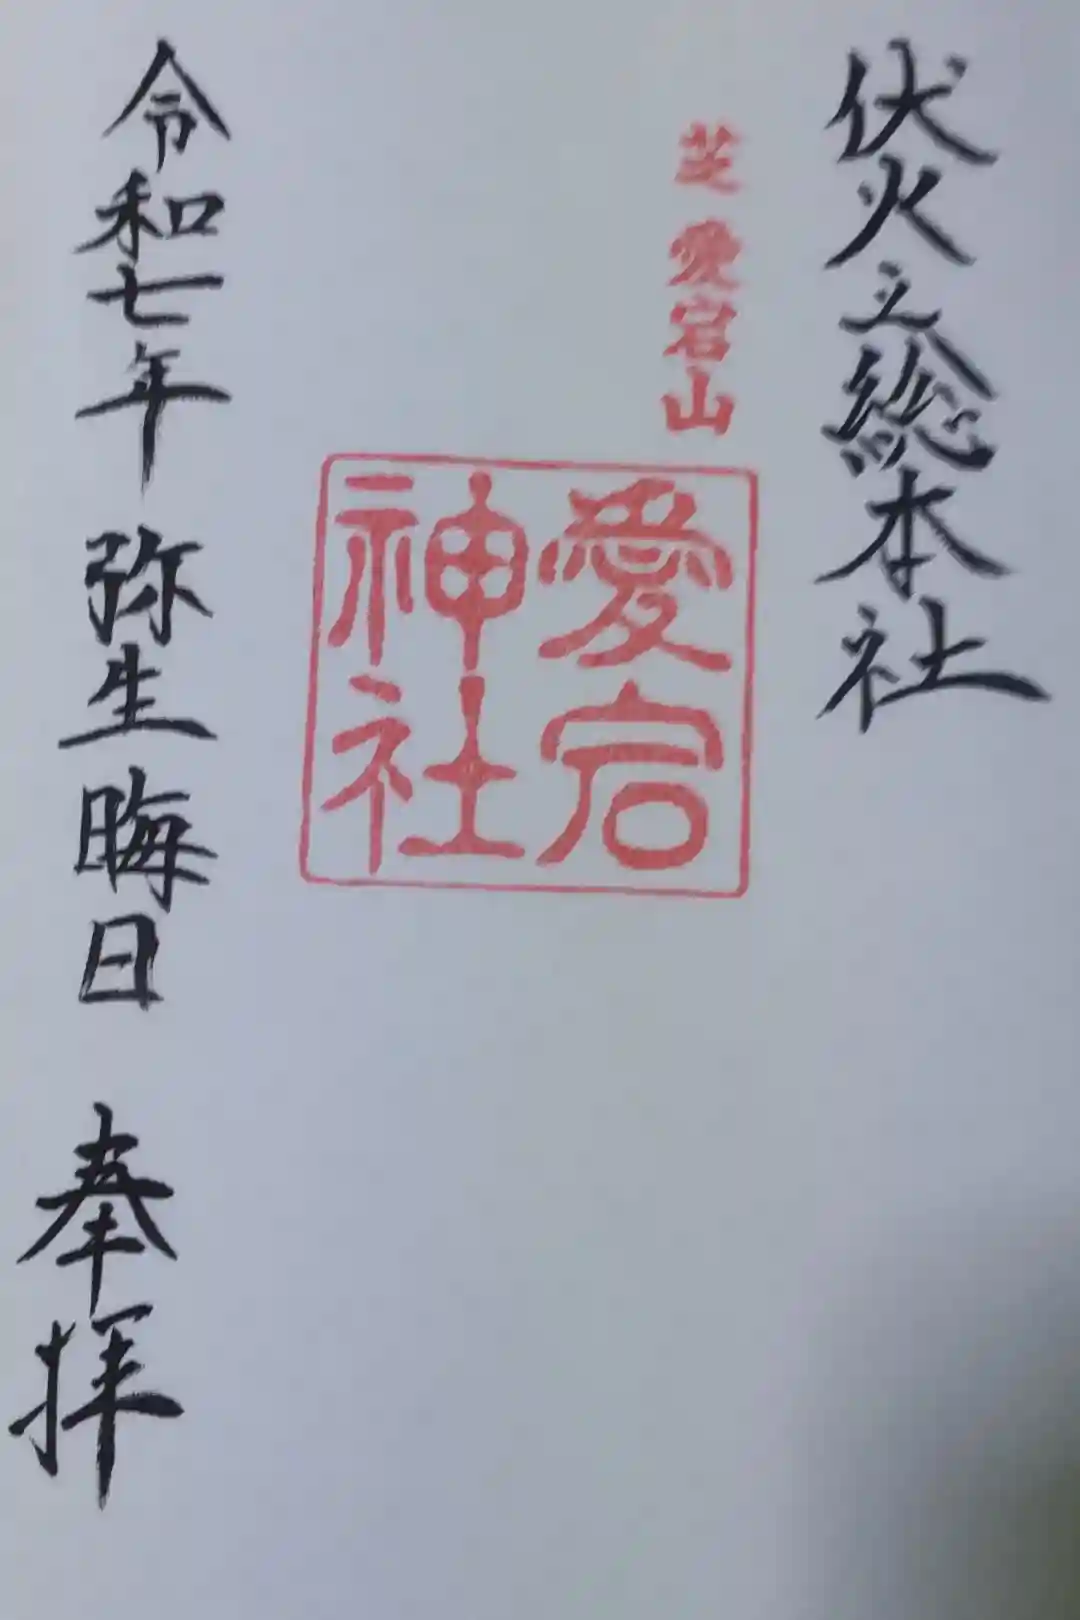 伏火之総本社
芝愛宕山
愛宕
神社
令和七年 弥生晦日 奉拝